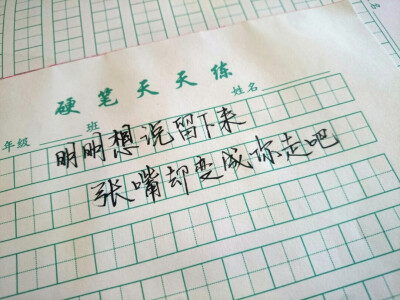 硬笔天天练
年级 班 姓名
明明想说留下来
张嘴却变成你走吧